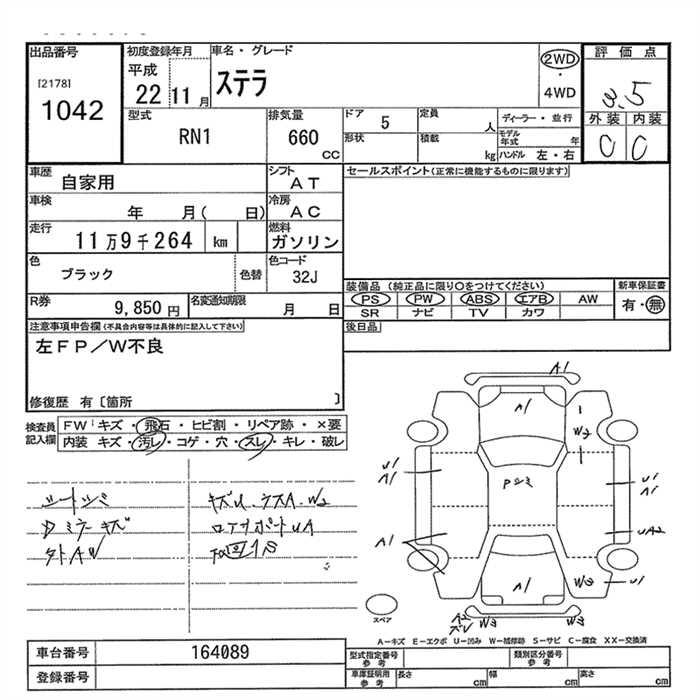 出品番号
[2178]
1042
初度登録年月
平成
22 11月
車名・グレード
ステラ
2WD
・
4WD
評価点
3.5
外装 内装
C C
型式
RN1
排気量
660
CC
ドア 5
形状
定員 人
積載 kg
ディーラー・並行
モデル年式 年
ハンドル 左・右
車歴
自家用
シフト
AT
車検
年 月( 日)
冷房
AC
走行
11万9千264 km
燃料
ガソリン
色
ブラック
色替
色コード
32J
R券
9,850円
名変通知期限
月 日
セールスポイント(正常に機能するものに限ります)
装備品(純正品に限り○をつけてください)
PS PW ABS エアB AW
SR ナビ TV カワ
新車保証書
有・無
後日品
注意事項申告欄(不具合内容等は具体的に記入して下さい)
左FP/W不良
修復歴 有[箇所 ]
検査員記入欄
FW:キズ・飛石・ヒビ割・リペア跡・×要
内装 キズ・汚レ・コゲ・穴・スレ・キレ・破レ
シートシミ
外AW
A1
A1
W2
U1
A1
Pシミ
U1
A1
A1
UA2
A1
W2
U1
A2
W2
W2
スペア
A―キズ E―エクボ U―凹み W―補修跡 S―サビ C―腐食 XX―交換済
車台番号 164089
登録番号
型式指定番号
参考
類別区分番号
参考
車庫証明用
参考
長さ cm
幅 cm
高さ cm